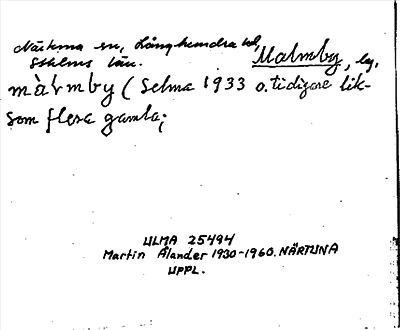 Närtuna sn, Långhundra hd,
Sthlms län.
Malmby, by.
màrmby (Selma 1933 o. tidigare lik-
som flera gamla;
ULMA 25494
Martin Ålander 1930-1960. NÄRTUNA
UPPL.